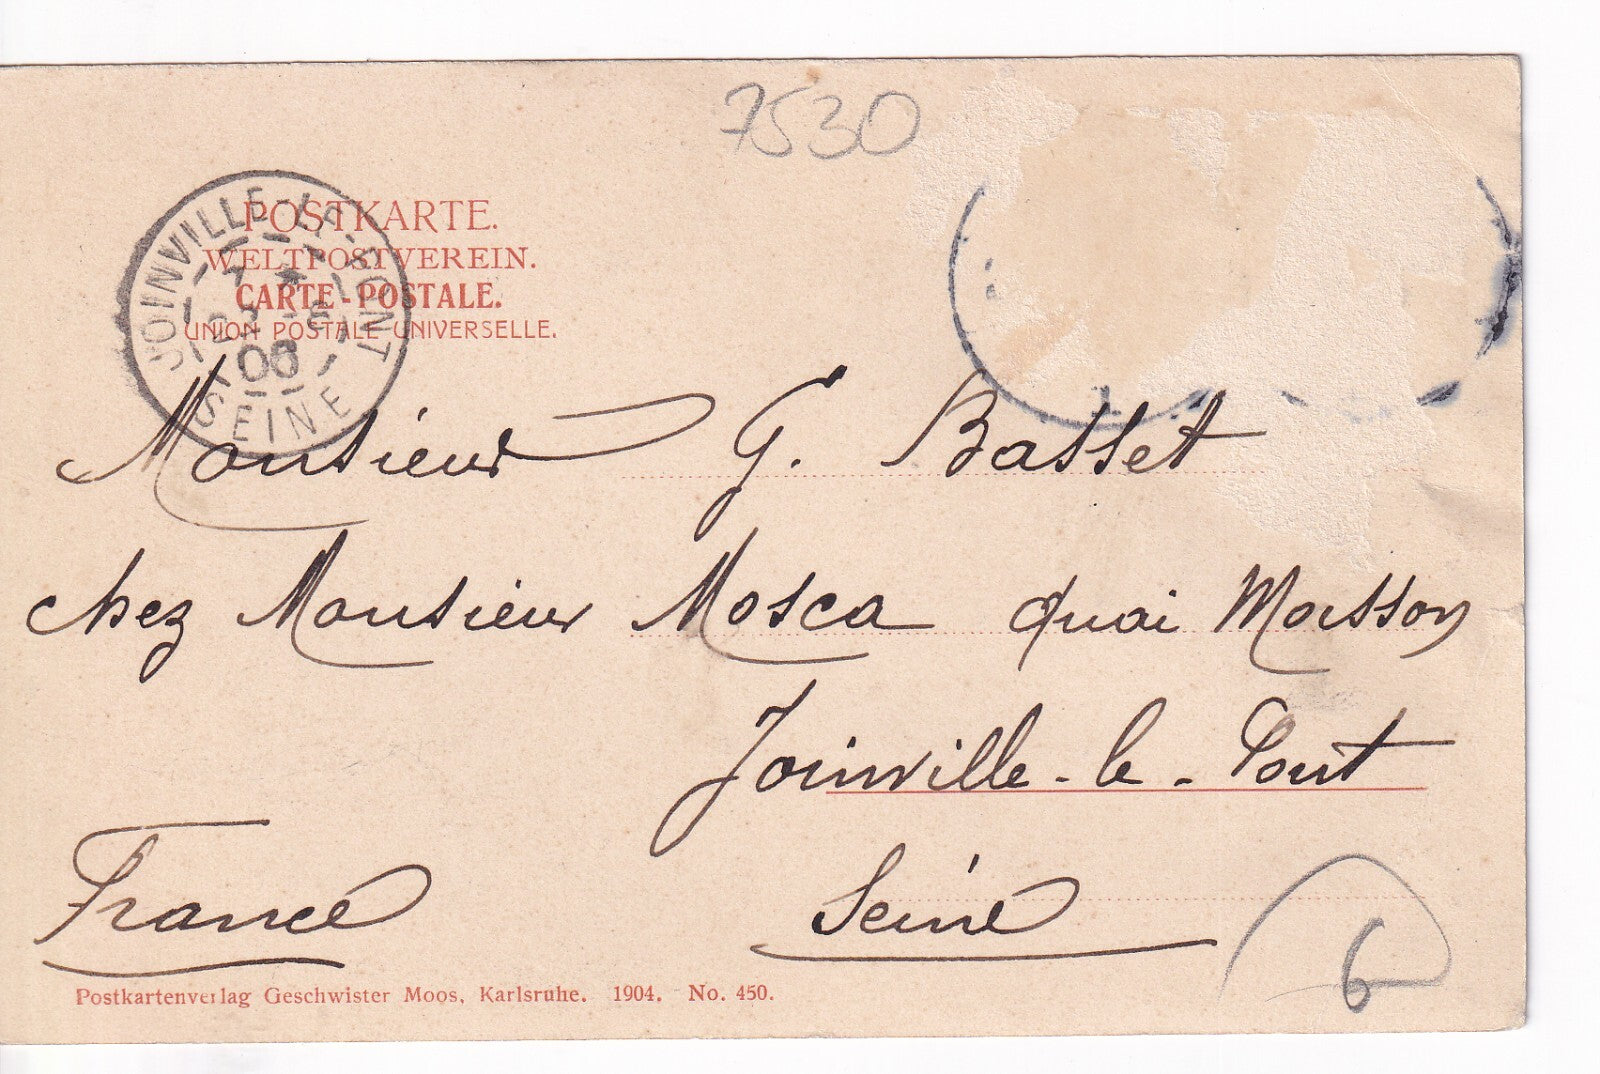 7530
POSTKARTE.
WELTPOSTVEREIN.
CARTE-POSTALE.
UNION POSTALE UNIVERSELLE.
JOINVILLE-LE-PONT
06
SEINE
Monsieur G. Basset
chez Monsieur Mosca quai Masson
Joinville-le-Pont
France Seine
6
Postkartenverlag Geschwister Moos, Karlsruhe. 1904. No. 450.